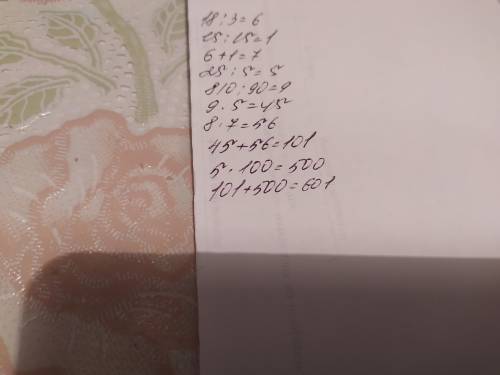 18:3=6
25:25=1
6+1=7
25:5=5
810:90=9
9·5=45
8·7=56
45+56=101
5·100=500
101+500=601